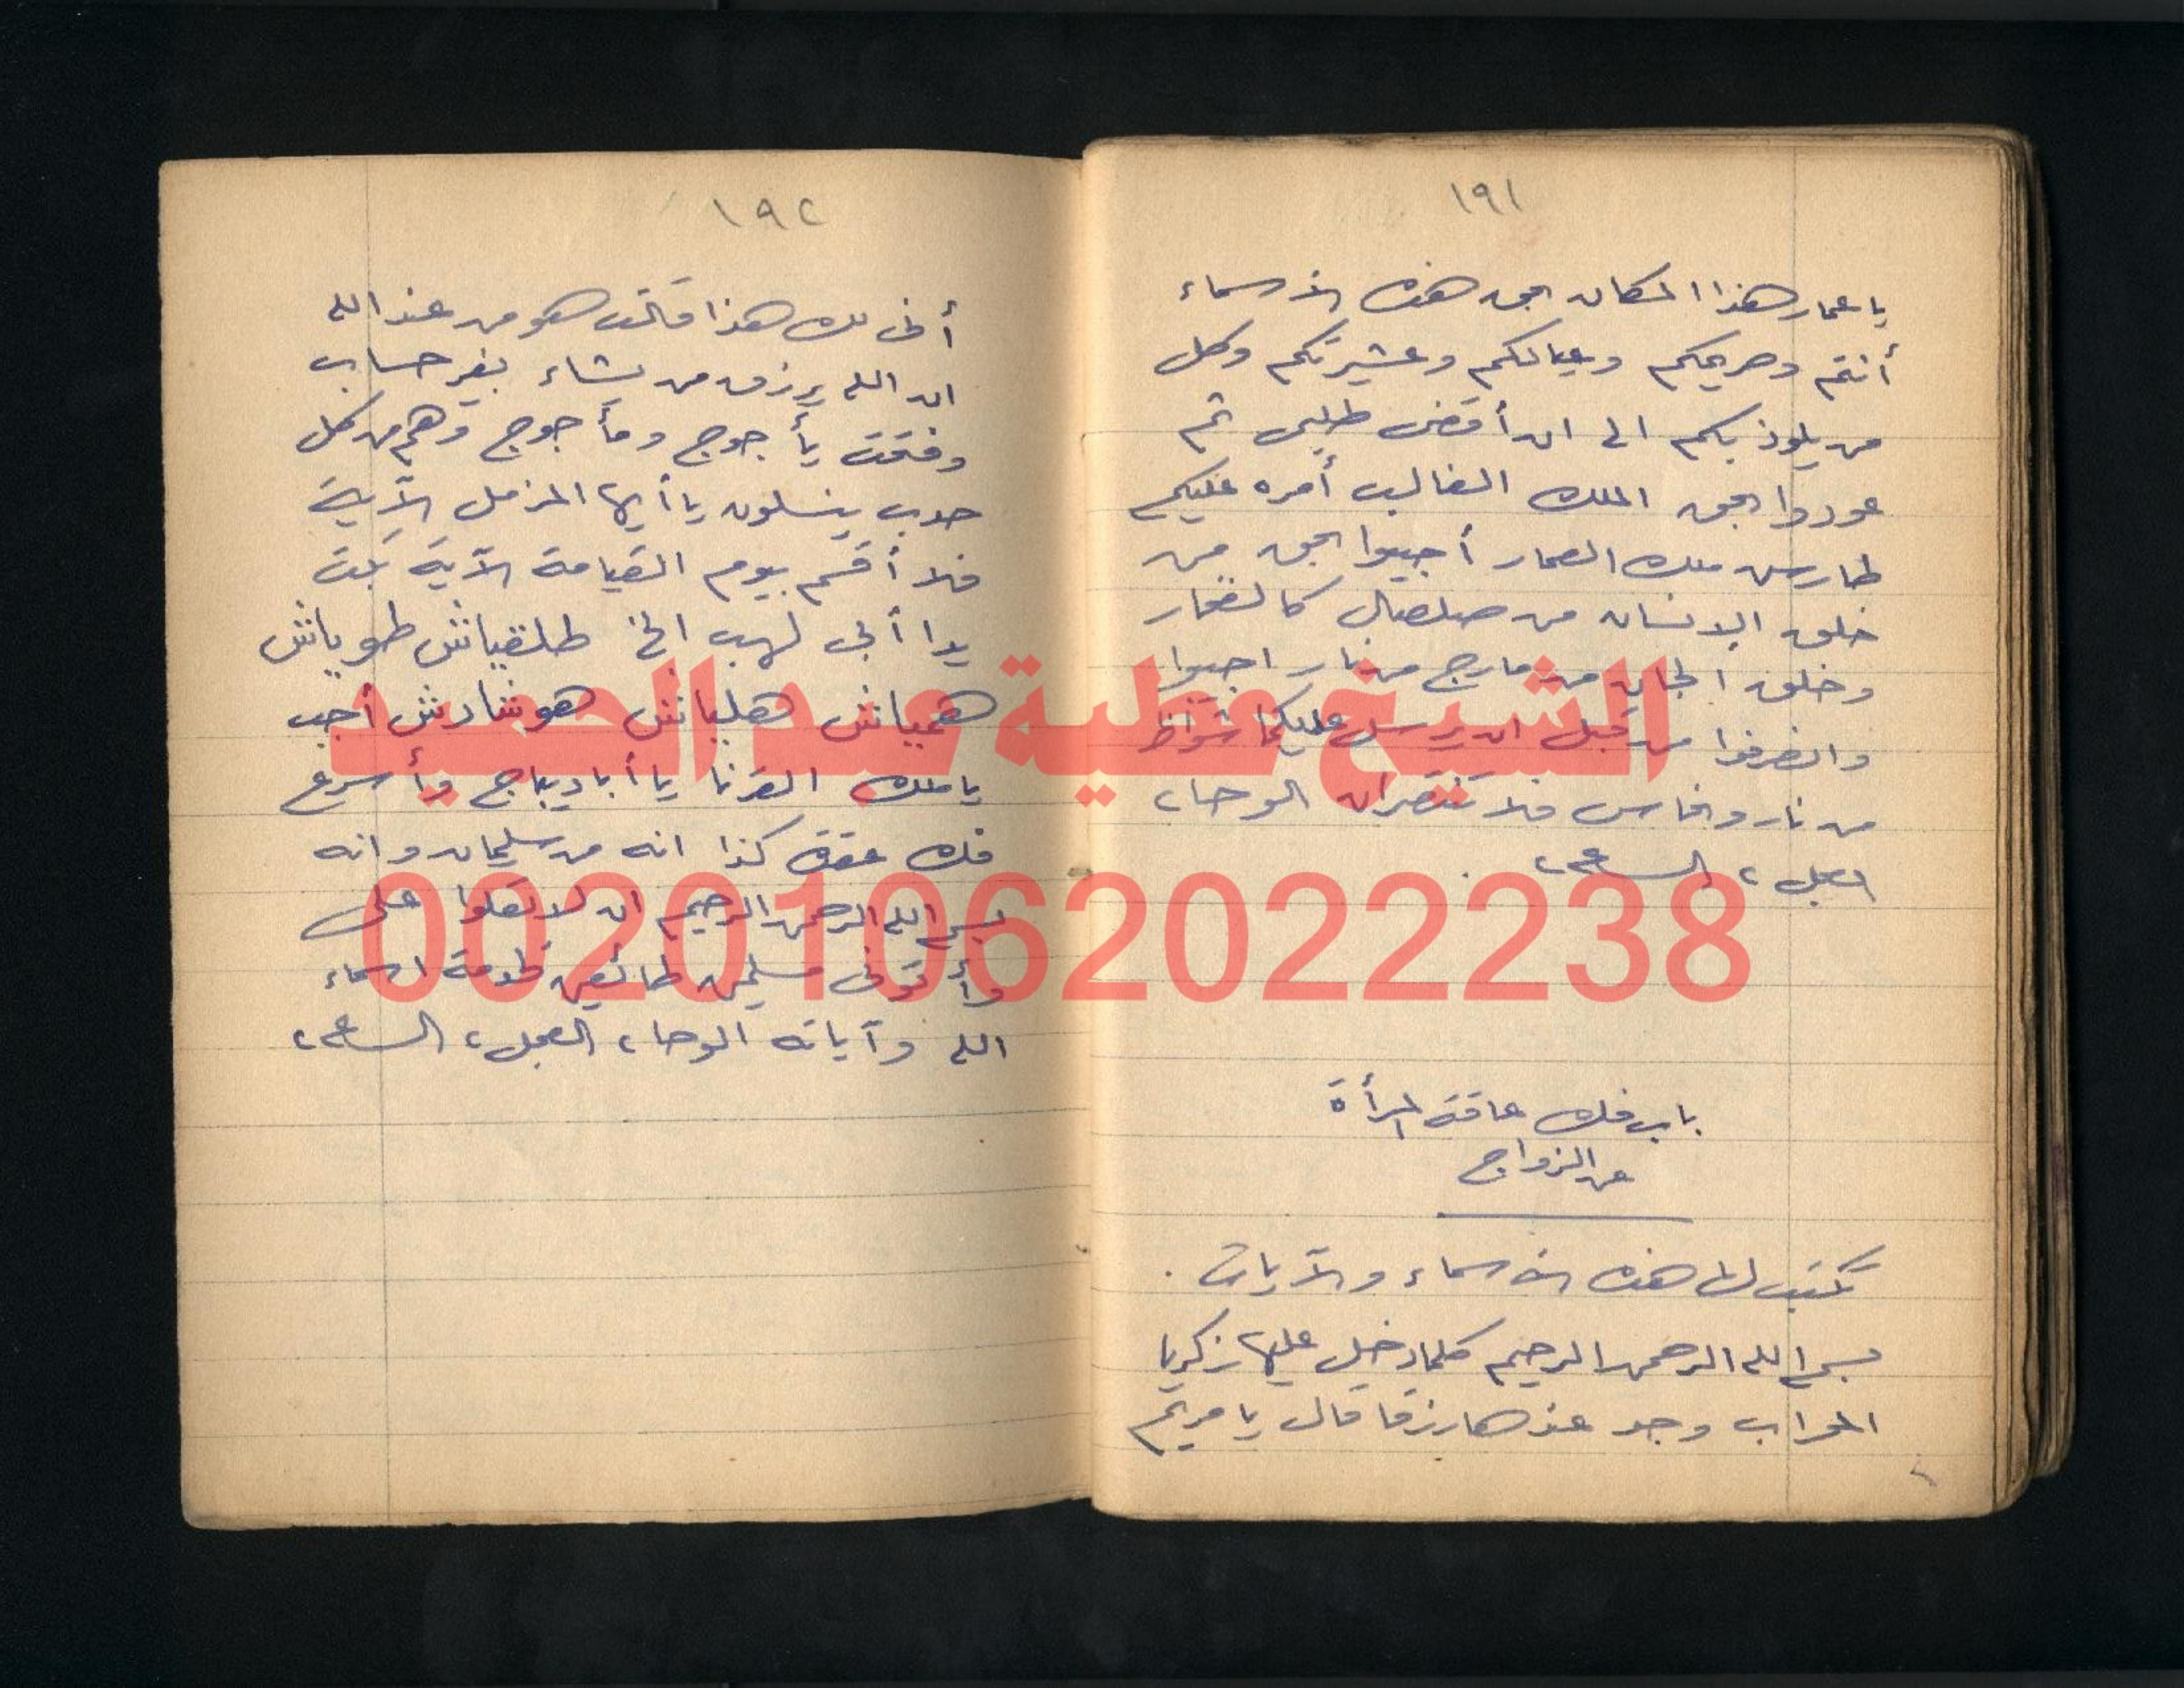 ١٩١
يا عمار هذا المكان بحق هذه الأسماء
أنتم وحريمكم وعيالكم وعشيرتكم وكل
من يلوذ بكم الى ان أقضى طلبى ثم
عودوا بحق الملك الغالب أمره عليكم
طارس ملك العمار أجيبوا بحق من
خلق الإنسان من صلصال كالفخار
وخلق الجان من مارج من نار اجيبوا
وانصرفوا من قبل ان يرسل عليكما شواظ
من نار ونحاس فلا تنتصران الوحا ٢
العجل ٢ الساعة ٢
باب فك عاقة المرأة
عن الزواج
تكتب لها هذه الأسماء والآيات .
بسم الله الرحمن الرحيم كلما دخل عليها زكريا
المحراب وجد عندها رزقا قال يا مريم
١٩٢
أنى لك هذا قالت هو من عند الله
ان الله يرزق من يشاء بغير حساب
وفتحت يأجوج ومأجوج وهم من كل
حدب ينسلون يا أيها المزمل الآية
فلا أقسم بيوم القيامة الآية تبت
يدا أبى لهب الخ طلقياش طوياش
همياش هلياش هوشارش أجب
يا ملك القرنا يا أبا ديباج وأسرع
فك عقدة كذا انه من سليمان وانه
بسم الله الرحمن الرحيم ان لا تعلوا على
وأتونى مسلمين طائعين لخدمة اسماء
الله وآياته الوحا ٢ العجل ٢ الساعة ٢
الشيخ عطية عبد الحميد
00201062022238